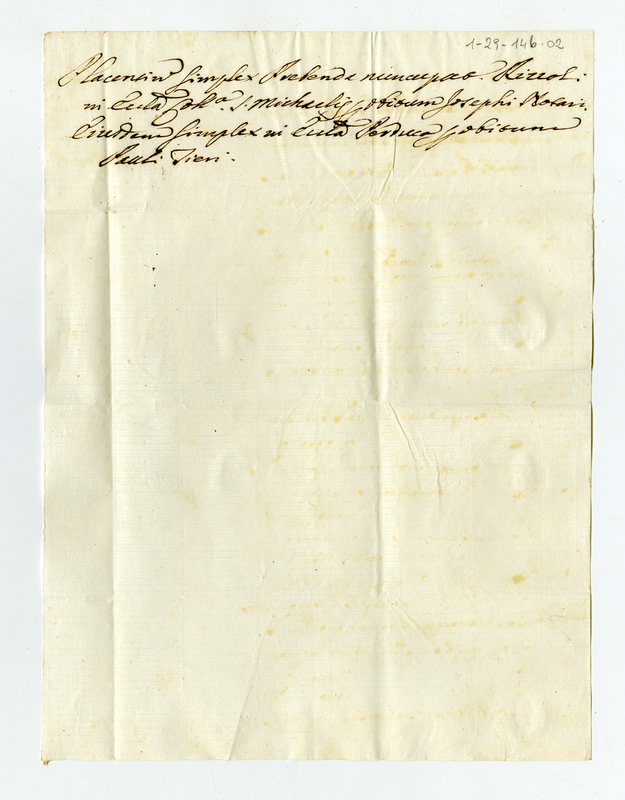 1-29-146-02
Placentin' Simplex Prebenda nuncupat. Rizzoli
in Eccla Colta. S. Michaelis p obitum Josephi Novari.
Eiusdem Simplex in Eccla p obitum
Pauli Fieri.